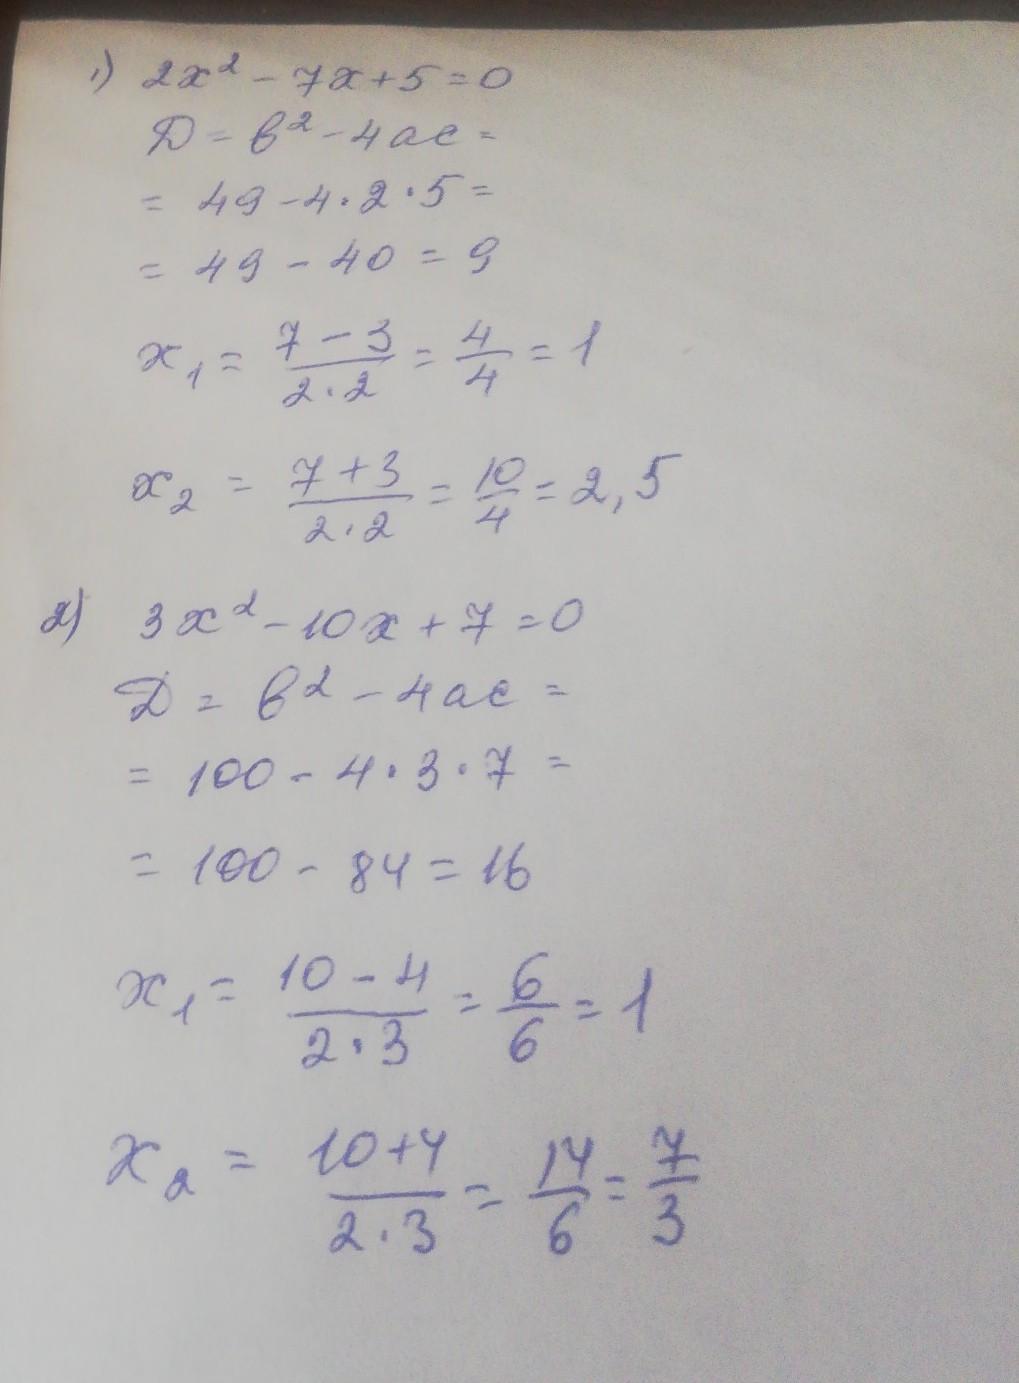 1) 2x² - 7x + 5 = 0
Д = в² - 4ac =
= 49 - 4 · 2 · 5 =
= 49 - 40 = 9
x₁ = (7 - 3)/(2 · 2) = 4/4 = 1
x₂ = (7 + 3)/(2 · 2) = 10/4 = 2,5
2) 3x² - 10x + 7 = 0
Д = в² - 4ac =
= 100 - 4 · 3 · 7 =
= 100 - 84 = 16
x₁ = (10 - 4)/(2 · 3) = 6/6 = 1
x₂ = (10 + 4)/(2 · 3) = 14/6 = 7/3